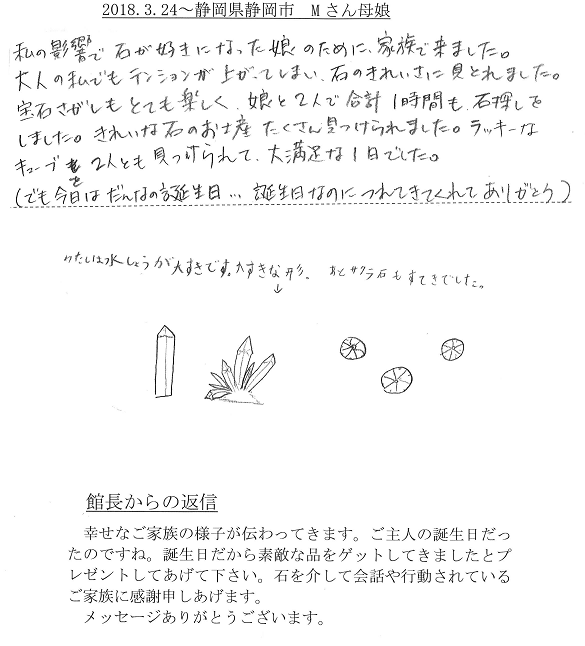 2018.3.24～静岡県静岡市　Mさん母娘
私の影響で石が好きになった娘のために、家族で来ました。
大人の私でもテンションが上がってしまい、石のきれいさに見とれました。
宝石さがしもとても楽しく、娘と2人で合計1時間も、石探しを
しました。きれいな石のお土産たくさん見つけられました。ラッキーな
キューブを2人とも見つけられて、大満足な1日でした。
(でも今日はだんなの誕生日… 誕生日なのにつれてきてくれてありがとう)
わたしは水しょうが大すきです。大すきな形、あとサクラ石もすてきでした。
↓
館長からの返信
幸せなご家族の様子が伝わってきます。ご主人の誕生日だっ
たのですね。誕生日だから素敵な品をゲットしてきましたとプ
レゼントしてあげて下さい。石を介して会話や行動されている
ご家族に感謝申しあげます。
メッセージありがとうございます。